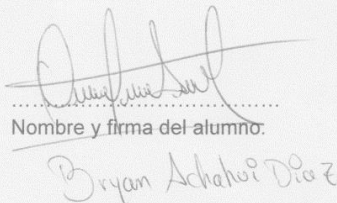 Nombre y firma del alumno:
Bryan Achahui Diaz